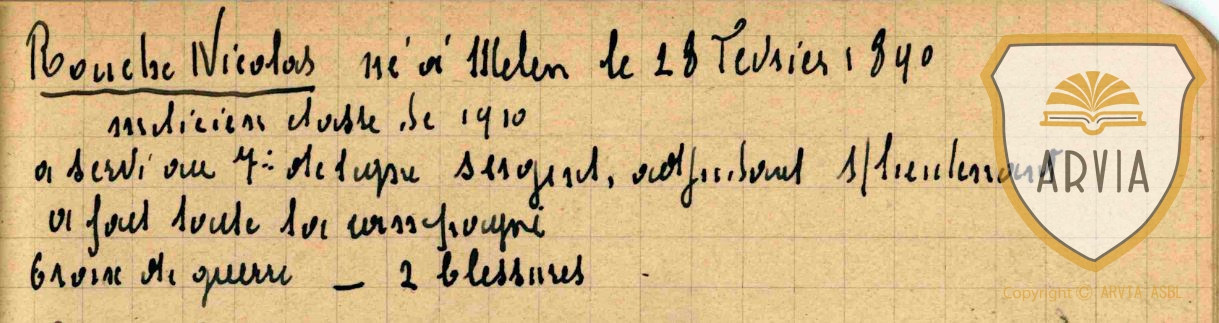 Rouche Nicolas né à Melen le 28 Fevrier 1890
milicien classe de 1910
a servi au 7e de ligne sergent, adjudant s/lieutenant
a fait toute la campagne
Croix de guerre — 2 blessures
ARVIA
Copyright © ARVIA ASBL